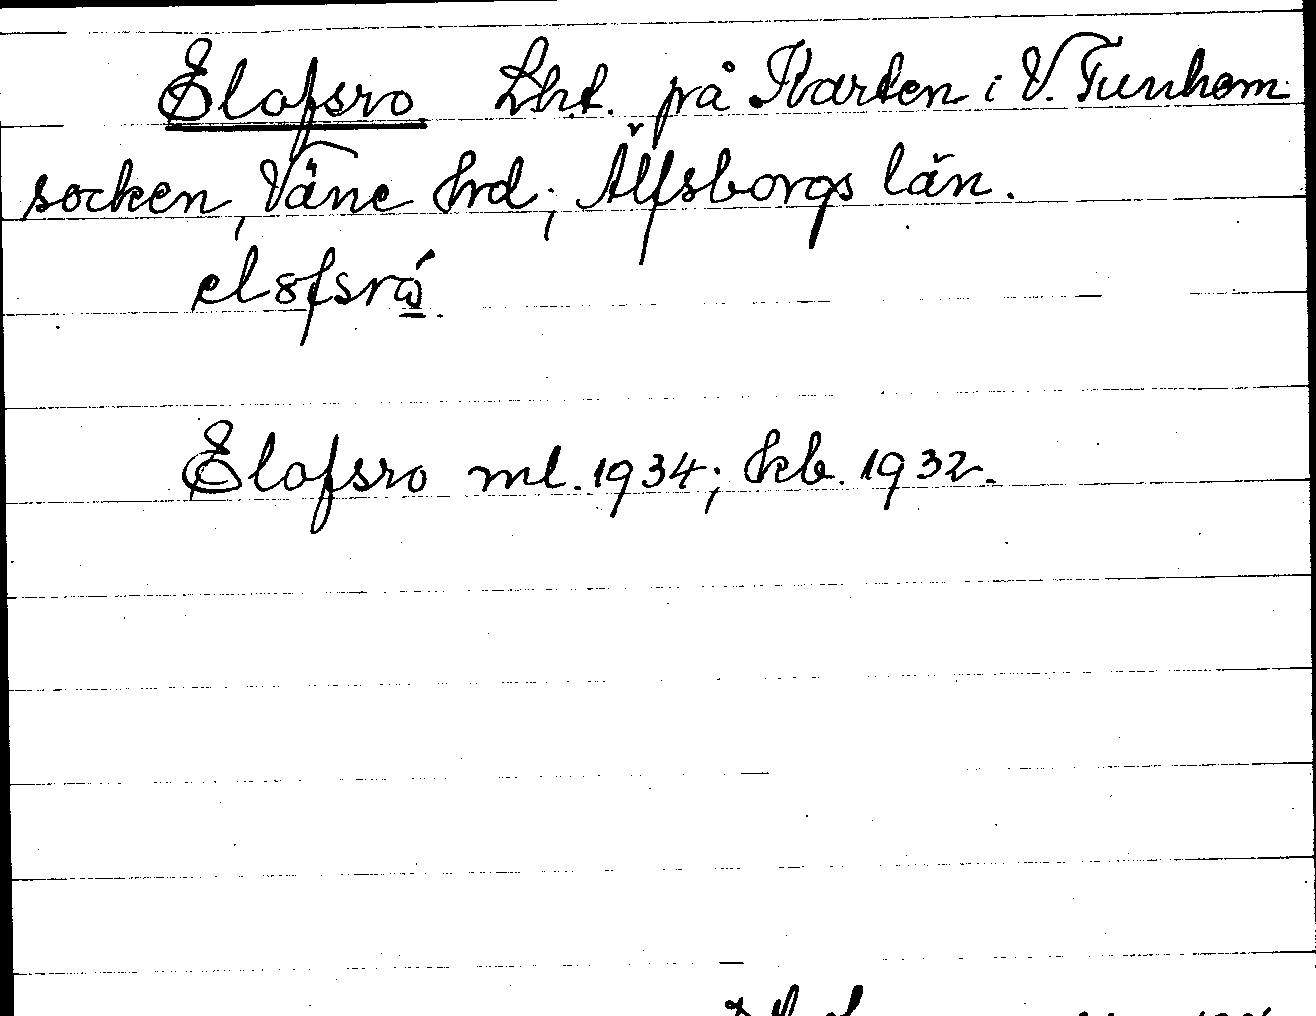 Elofsro. Lht. på Karten i V. Tunhem
socken, Väne hrd; Älfsborgs län.
elofsró
Elofsro ml. 1934; kb. 1932.